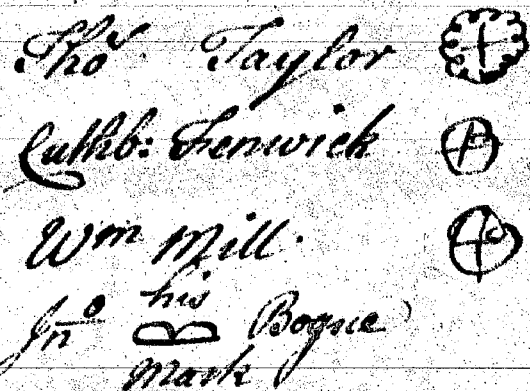 Thos Taylor
Cuthb: Fenwick
Wm Mill.
his
Jno Bogue
Mark